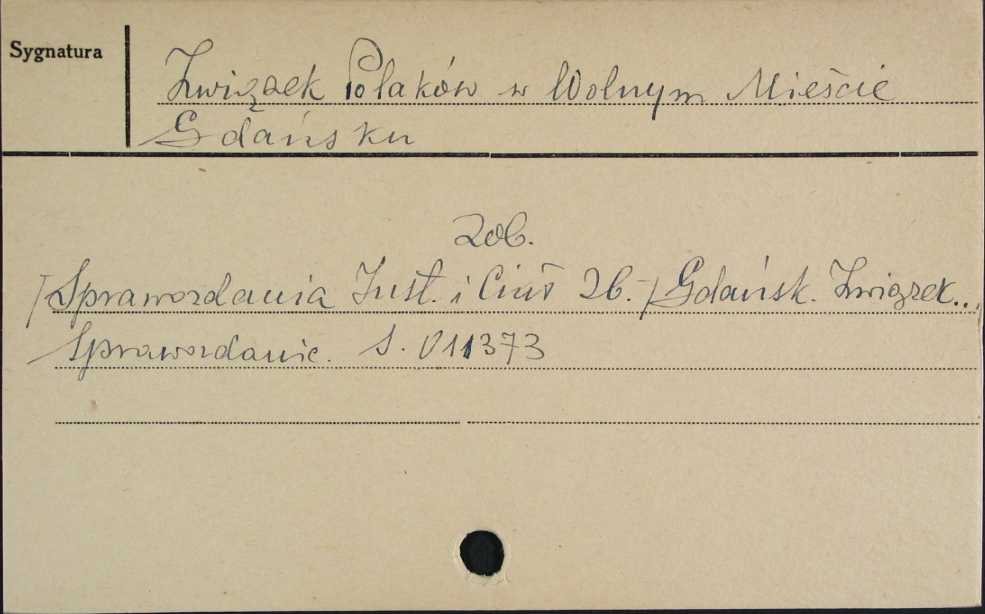 Sygnatura
Związek Polaków w Wolnym Mieście
Gdańsku
Zob.
/Sprawozdania Inst. i 26.-/ Gdańsk. Związek...
Sprawozdanie. S. 011373